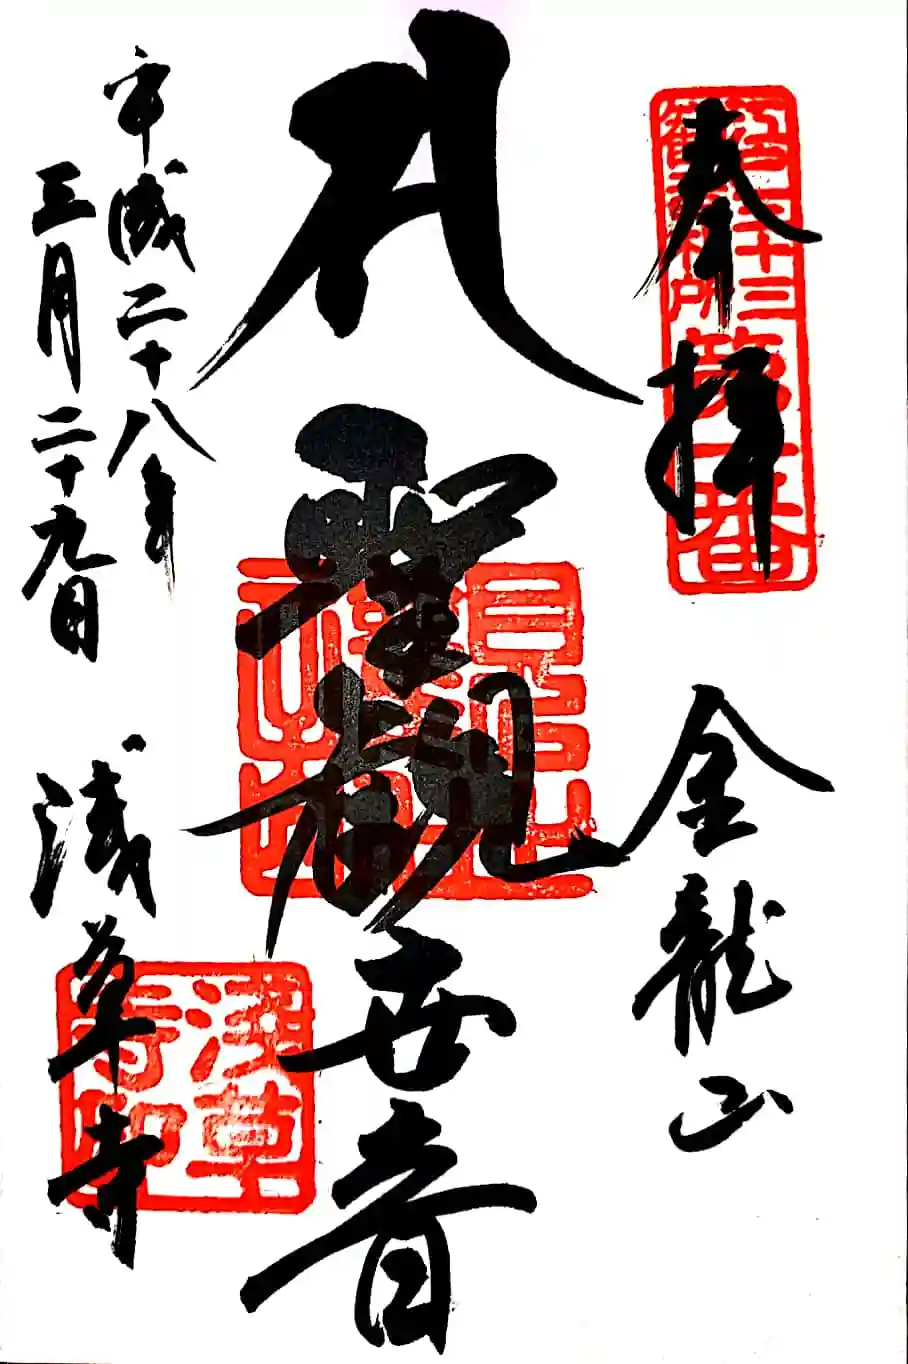 江戸三十三
観音札所
第一番
奉拝
金龍山
聖観世音
平成二十八年
三月二十九日
浅草寺
浅草
寺印